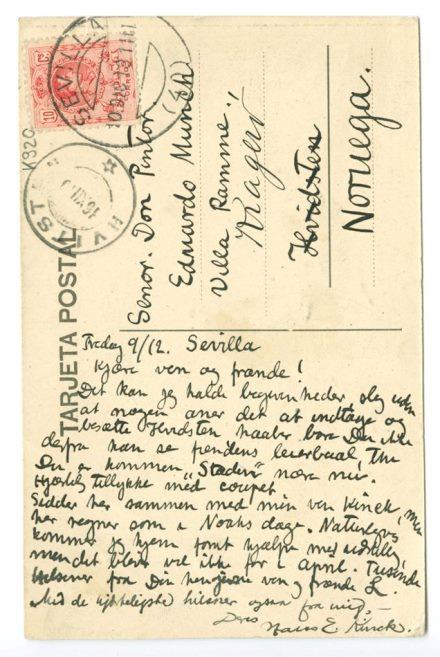 SEVILLA
HVITSTE
K320
TARJETA POSTAL
Senor. Don Pintor
Eduardo Munch
Villa Ramme"
Kragerø
Hvidsten
Noruega.
Fredag 9/12. Sevilla
Kjære ven og frænde!
Det kan jeg kalde begivenheder, og uden
at nogen aner det at indtage og
besætte Hvidsten haaber bare Du ikke
derfra kan se fiendens leierbaal Thi
Du er kommen "Staden" nære nu.
Hjertelig tillykke med coupet
Sidder her sammen med min ven Kinck, men
her regner som i Noahs dage. Naturligvis
kommer jeg hjem for at hjælpe med
men det blir vel ikke før i april. Tusinde
Hilsener fra Din hengivne ven og frænde L.
Med de hjerteligste hilsener ogsaa fra mig,—
Deres
Hans E. Kinck.